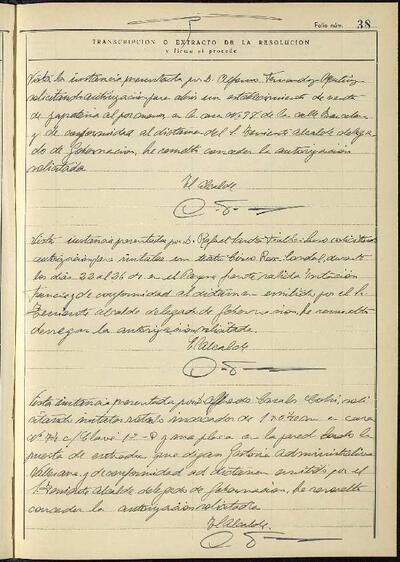 Folio núm. 38
TRANSCRIPCION O EXTRACTO DE LA RESOLUCION
y firma si procede
Vista la instancia presentada por D. Alfonso Fernandez
solicitando autorización para abrir un establecimiento de venta
de zapatería al por menor en la casa nº 98 de la calle
y de conformidad al dictamen del S. Teniente Alcalde delega
do de Gobernación, he resuelto conceder la autorización
solicitada
El Alcalde
Vista instancia presentada por D. Rafael solicitando
autorización para instalar un teatro Circo durante
los dias 22 al 26 de en el frente
y de conformidad al dictamen emitido por el S.
Teniente Alcalde delegado de Gobernación, he resuelto
denegar la autorización solicitada.
El Alcalde
Vista instancia presentada por Alfredo Casals soli
citando instalar rótulo indicador de en casa
Nº 74 c/ Clavé 1º - y una placa en la pared la
puesta de entrada, que digan Gestoria administrativa
Vallesana, y de conformidad al dictamen emitido por el
S. Teniente Alcalde delegado de Gobernación, he resuelto
conceder la autorización solicitada
El Alcalde.